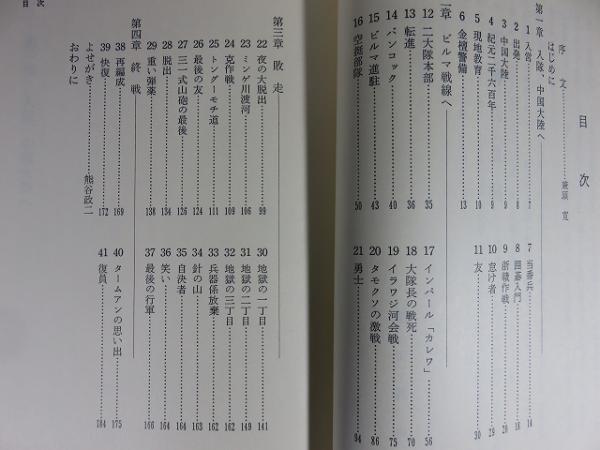 目次
序文……兼頭 寛
はじめに
第一章 入隊、中国大陸へ
1 入営……1
2 出発……2
3 中国大陸……4
4 紀元二千六百年……9
5 現地教育……10
6 金檀警備……13
7 当番兵……14
8 囲碁入門……18
9 浙贛作戦……20
10 怠け者……29
11 友……30
二章 ビルマ戦線へ
12 二大隊本部……35
13 転進……36
14 バンコック……40
15 ビルマ進駐……43
16 空挺部隊……50
17 インパール「カレワ」……56
18 大隊長の戦死……70
19 イラワジ河会戦……75
20 タモクソの激戦……86
21 勇士……94
第三章 敗走
22 夜の大脱出……99
23 ミンゲ川渡河……106
24 克作戦……109
25 トングーモチ道……111
26 最後の友……124
27 三一式山砲の最後……126
28 脱出……134
29 重い弾薬……138
30 地獄の一丁目……141
31 地獄の二丁目……149
32 地獄の三丁目……162
33 兵器係放棄……163
34 針の山……162
35 自決者……164
36 笑い……164
37 最後の行軍……166
第四章 終戦
38 再編成……169
39 快復……172
40 タームアンの思い出……175
41 復員……184
よせがき……熊谷政二
おわりに
目次